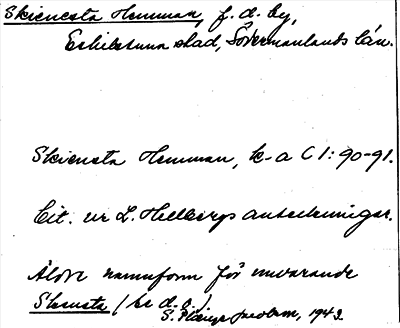 Skiensta Hemman, f. d. by,
Eskilstuna stad, Södermanlands län.
Skiensta Hemman, k-a C 1: 90-91.
Cit. ur L. Hellbergs anteckningar.
Äldre namnform för nuvarande
Skensta (se d. o.)
S. 1943.